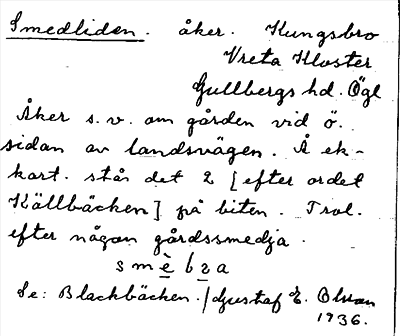 Smedliden. åker. Kungsbro
Vreta Kloster
Gullbergs hd. Ögl
Åker s.v. om gården vid ö.
sidan av landsvägen. Å ek-
kart. står det 2 [efter ordet
Källbäcken] på biten. Trol.
efter någon gårdssmedja.
s m è b ꞓ a
Se: Blackbäcken. / Gustaf E. Olsson
1936.